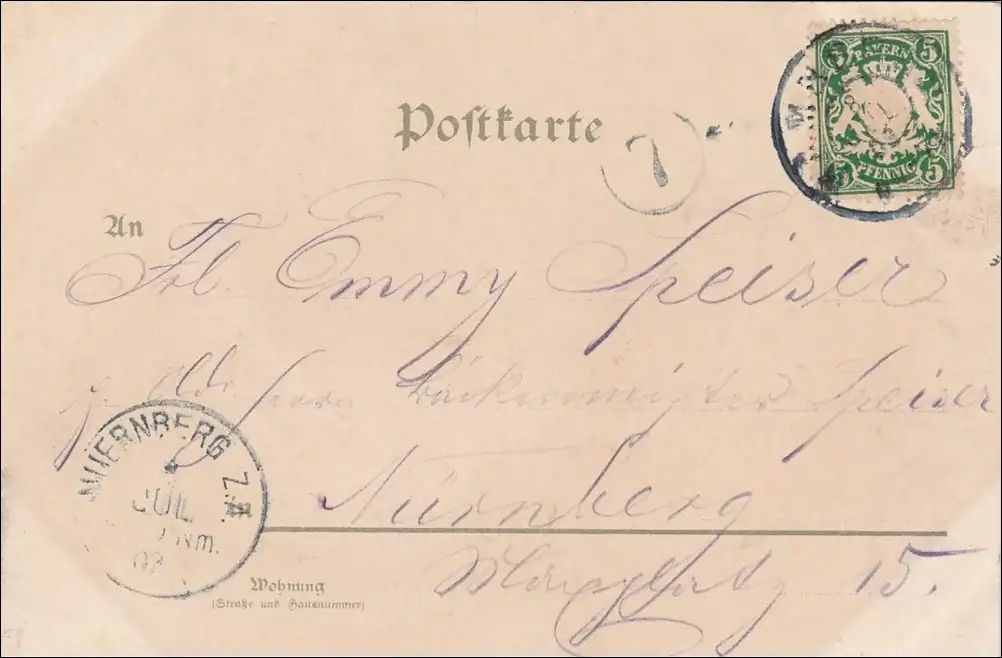 5 BAYERN 5
5 PFENNIG 5
Postkarte
1
An
Frl. Emmy Speiser
Adr. Herrn Bäckermeister Speiser
Nürnberg
15.
NUERNBERG Z.
JUL
Nm.
Wohnung
(Straße und Hausnummer)